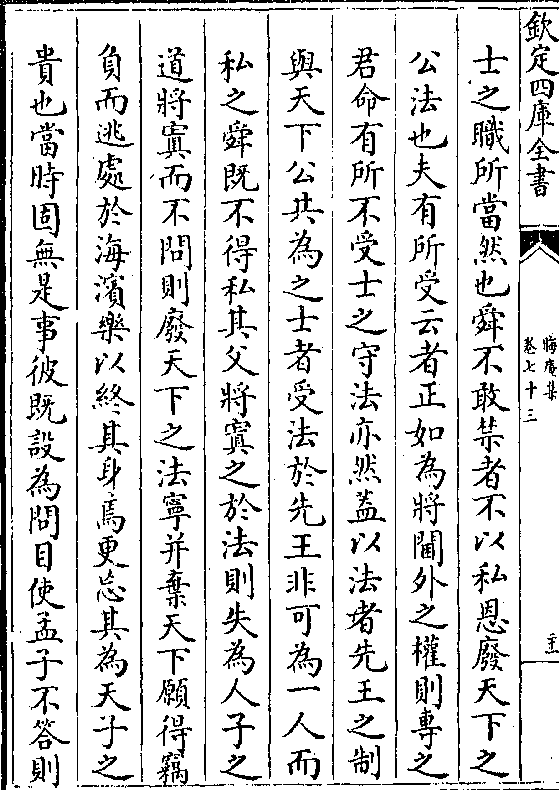 欽定四庫全書
晦庵集
卷七十三
士之職所當然也舜不敢禁者不以私恩廢天下之
公法也夫有所受云者正如為將閫外之權則專之
君命有所不受士之守法亦然蓋以法者先王之制
與天下公共為之士者受法於先王非可為一人而
私之舜既不得私其父將寘之於法則失為人子之
道將寘而不問則廢天下之法寧并棄天下願得竊
負而逃處於海濱樂以終其身焉更忘其為天子之
貴也當時固無是事彼既設為問目使孟子不答則